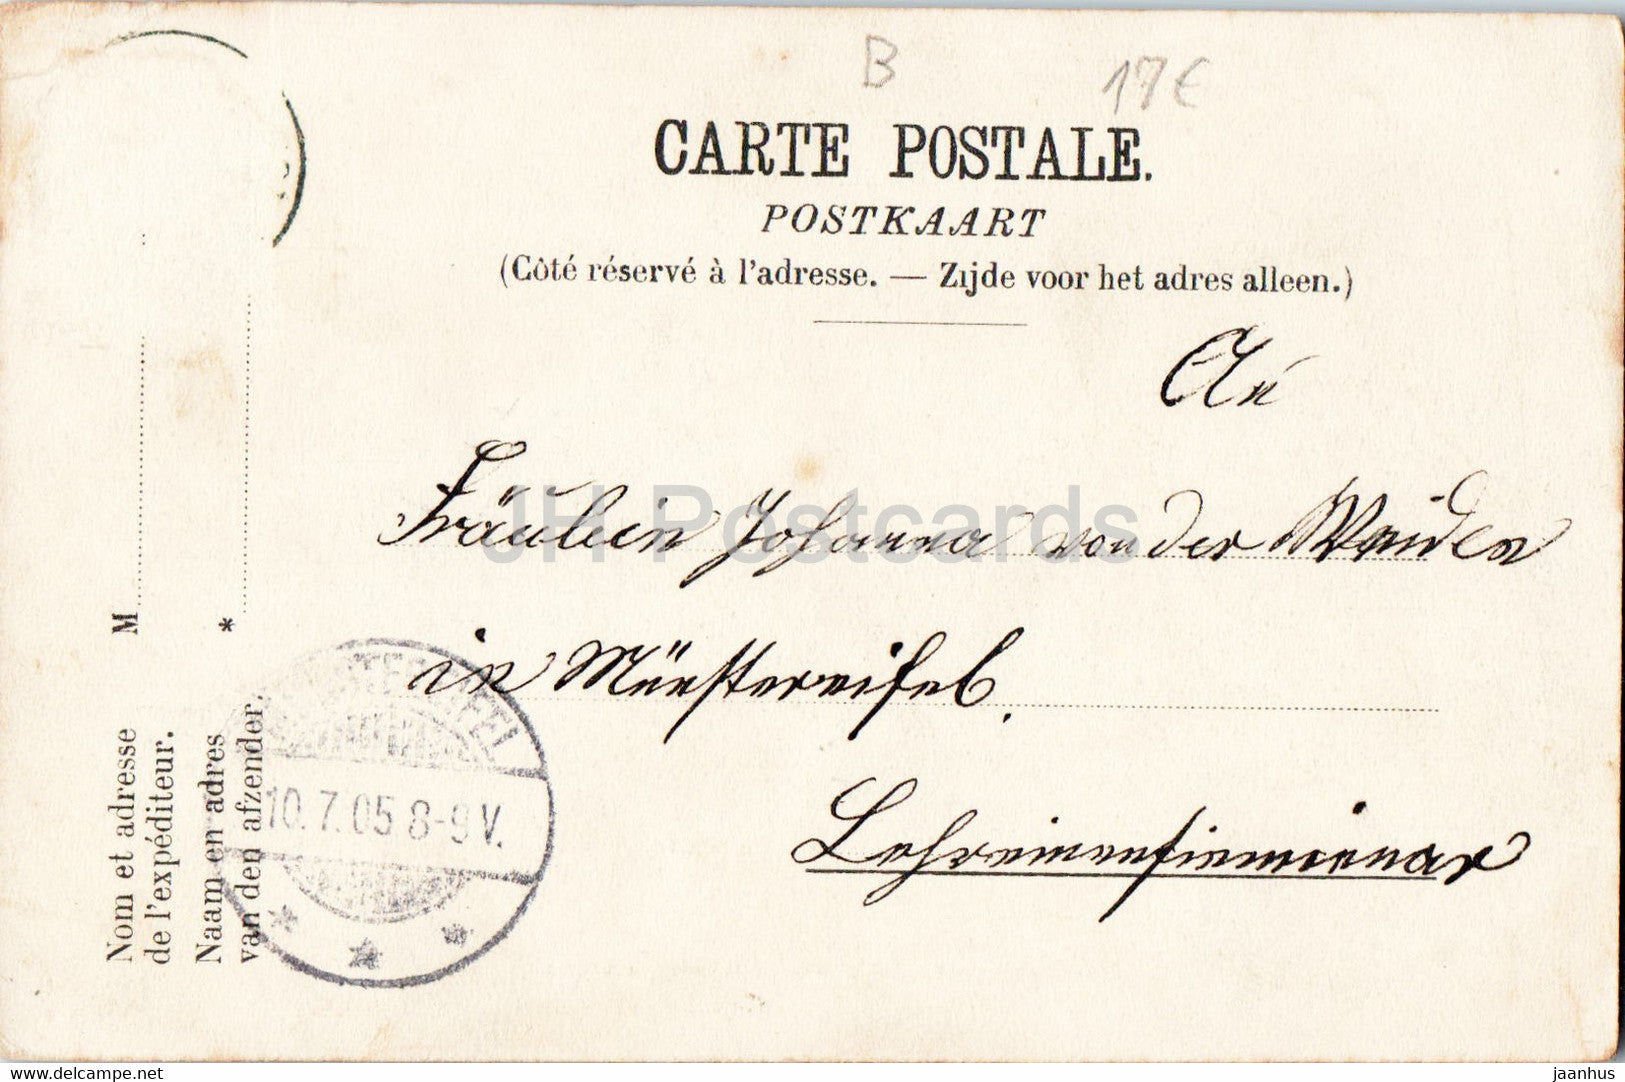 B 17€
CARTE POSTALE.
POSTKAART
(Côté réservé à l'adresse. — Zijde voor het adres alleen.)
An
Fräulein Johanna von der Weiden
in Münstereifel.
Lehrerinnenseminar
M
*
Nom et adresse
de l'expéditeur.
Naam en adres
van den afzender.
MÜNSTEREIFEL
10.7.05 8-9V.
JH Postcards
jaanhus-delcampe.net
jaanhus